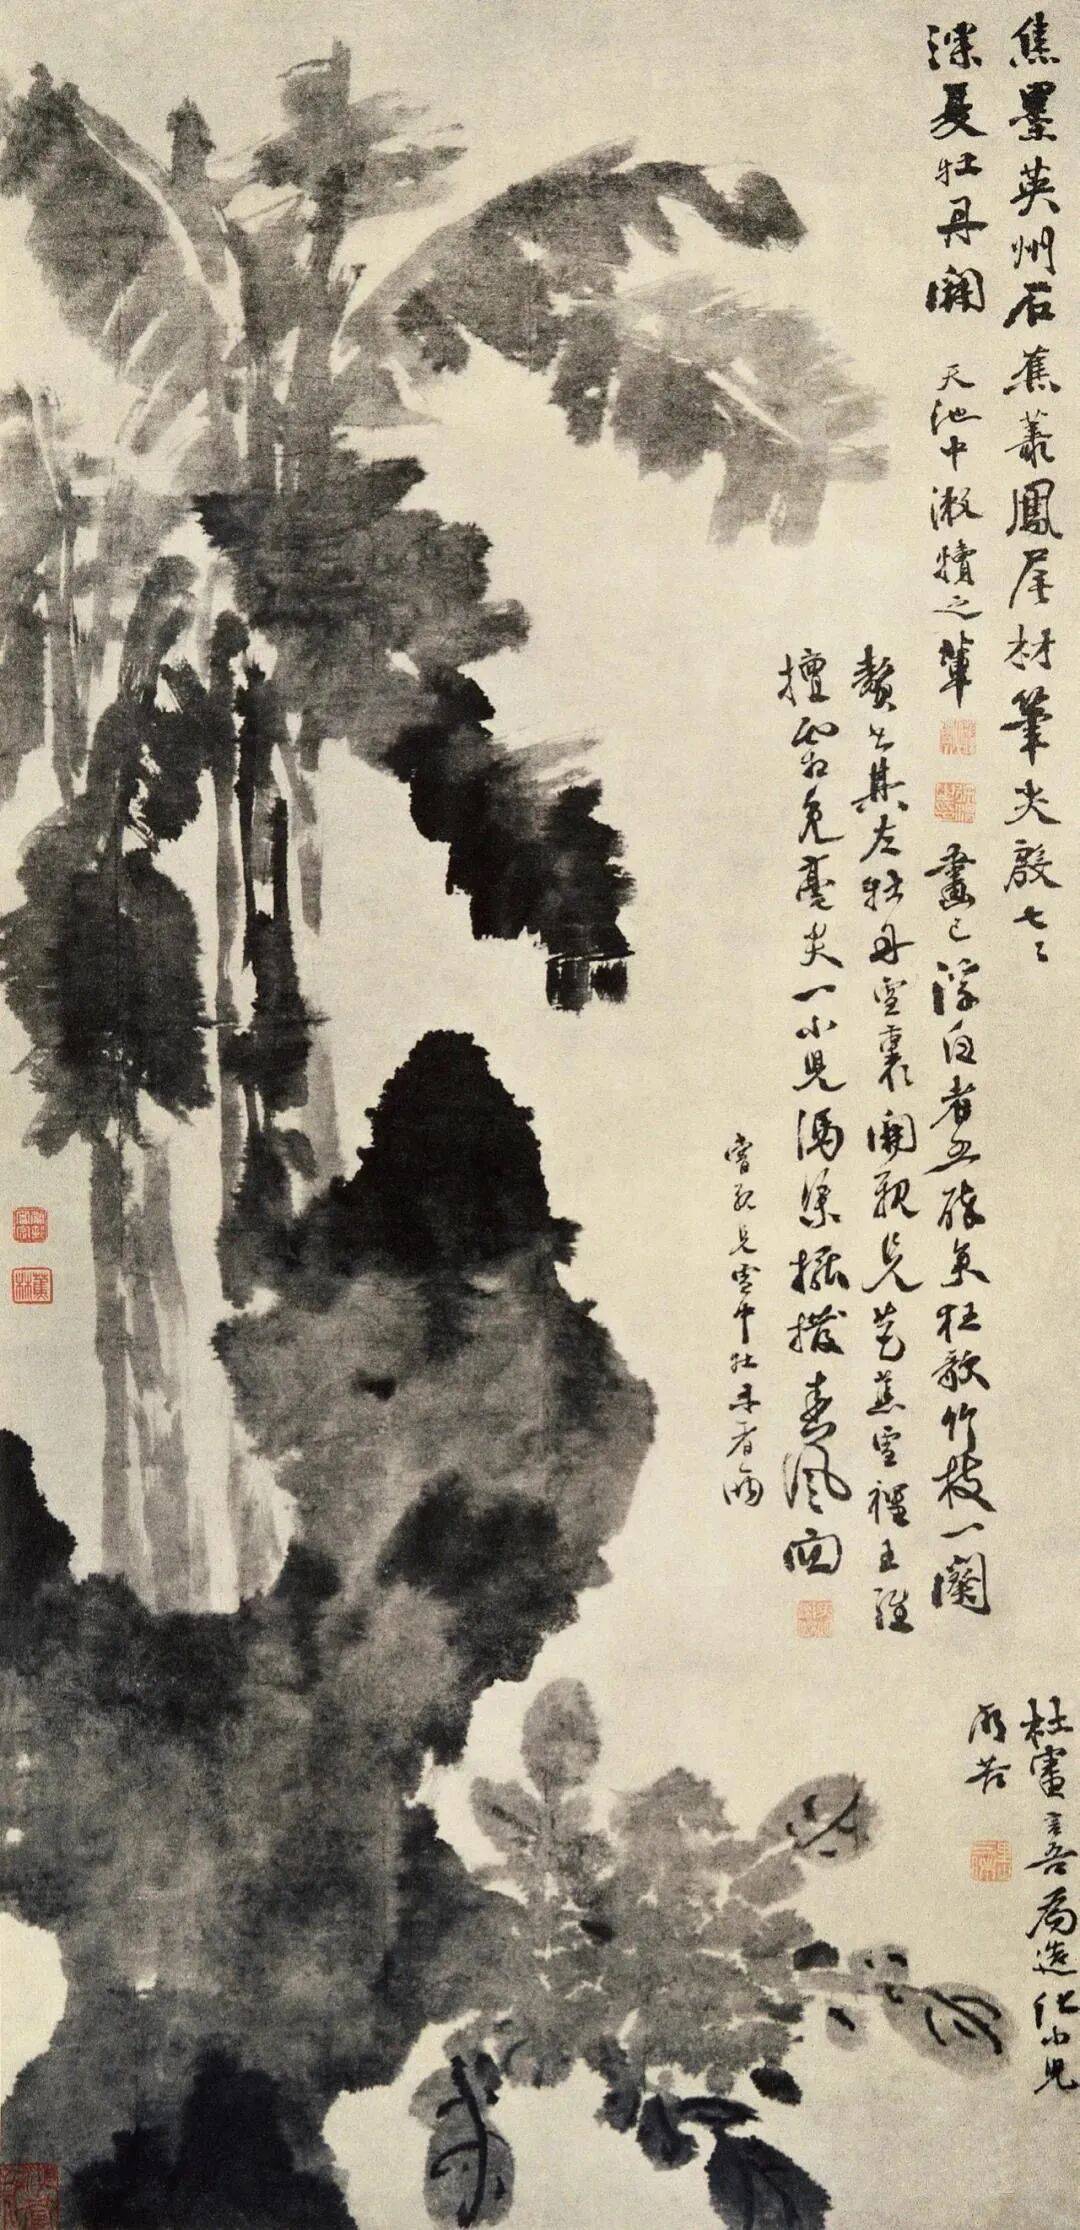 焦墨英州石蕉叢鳳尾材筆尖殷七々
深夏牡丹開
天池中漱犢之輩
畫已浮白者五醉矣狂歌竹枝一闋
贅書其左牡丹雪裏開親見芭蕉雪裡王維
擅霜兔毫尖一小兒馮渠擺撥春風面
嘗親見雪中牡丹者兩
杜審言吾為造化小兒
所苦
蕉林